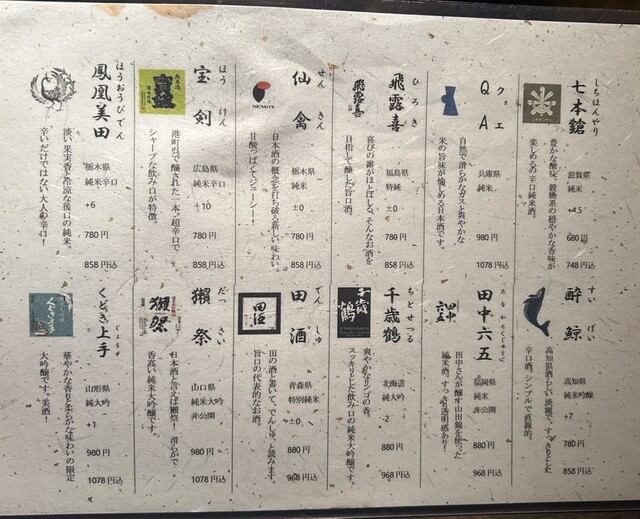 しちほんやり
七本鎗
滋賀県
純米
+4.5
680円
748円込
豊かな酸味、穀物系の穏やかな香味が
楽しめるの辛口純米酒。
クェ
QA
兵庫県
純米
980円
1078円込
自然で滑らかなガスと爽やかな
米の旨味が愉しめる日本酒です。
ひろき
飛露喜
福島県
特純
±0
780円
858円込
喜びの露がほとばしる、そんなお酒を
目指して醸した旨口酒。
飛露喜
せんきん
仙禽
栃木県
純米
±0
780円
858円込
日本酒の概念を打ち破る新しい味わい。
甘酸っぱくてジューシー！
SENKIN
ほうけん
宝剣
広島県
純米辛口
+10
780円
858円込
港町呉で醸された一本。超辛口で
シャープな飲み口が特徴。
寳剱
ほうおうびでん
鳳凰美田
栃木県
純米辛口
+6
780円
858円込
淡い果実香と冷涼な後口の純米。
辛いだけではない大人の辛口！
すいげい
酔鯨
高知県
純米吟醸
+7
780円
858円込
高知県酒らしい淡麗で、すっきりとした
辛口酒。シンプルで直線的。
たなかろくじゅうご
田中六五
福岡県
純米
非公開
880円
968円込
田中さんが醸す山田錦を使った
純米酒。すっきり透明感あり！
田中
六五
ちとせつる
千歳鶴
北海道
純大吟
-2
880円
968円込
爽やかなリンゴの香。
スッキリとした飲み口の純米大吟醸です。
千歳鶴
でんしゅ
田酒
青森県
特別純米
±0
880円
968円込
田の酒と書いて、でんしゅと読みます。
旨口の代表的なお酒。
田酒
だっさい
獺祭
山口県
純米大吟
非公開
980円
1078円込
日本酒と言えば獺祭！滑らかで
香高い純米大吟醸です。
獺祭
じょうず
くどき上手
山形県
純大吟
+1
980円
1078円込
華やかな香りと柔らかな味わいの限定
大吟醸です。美酒！
くどき上手